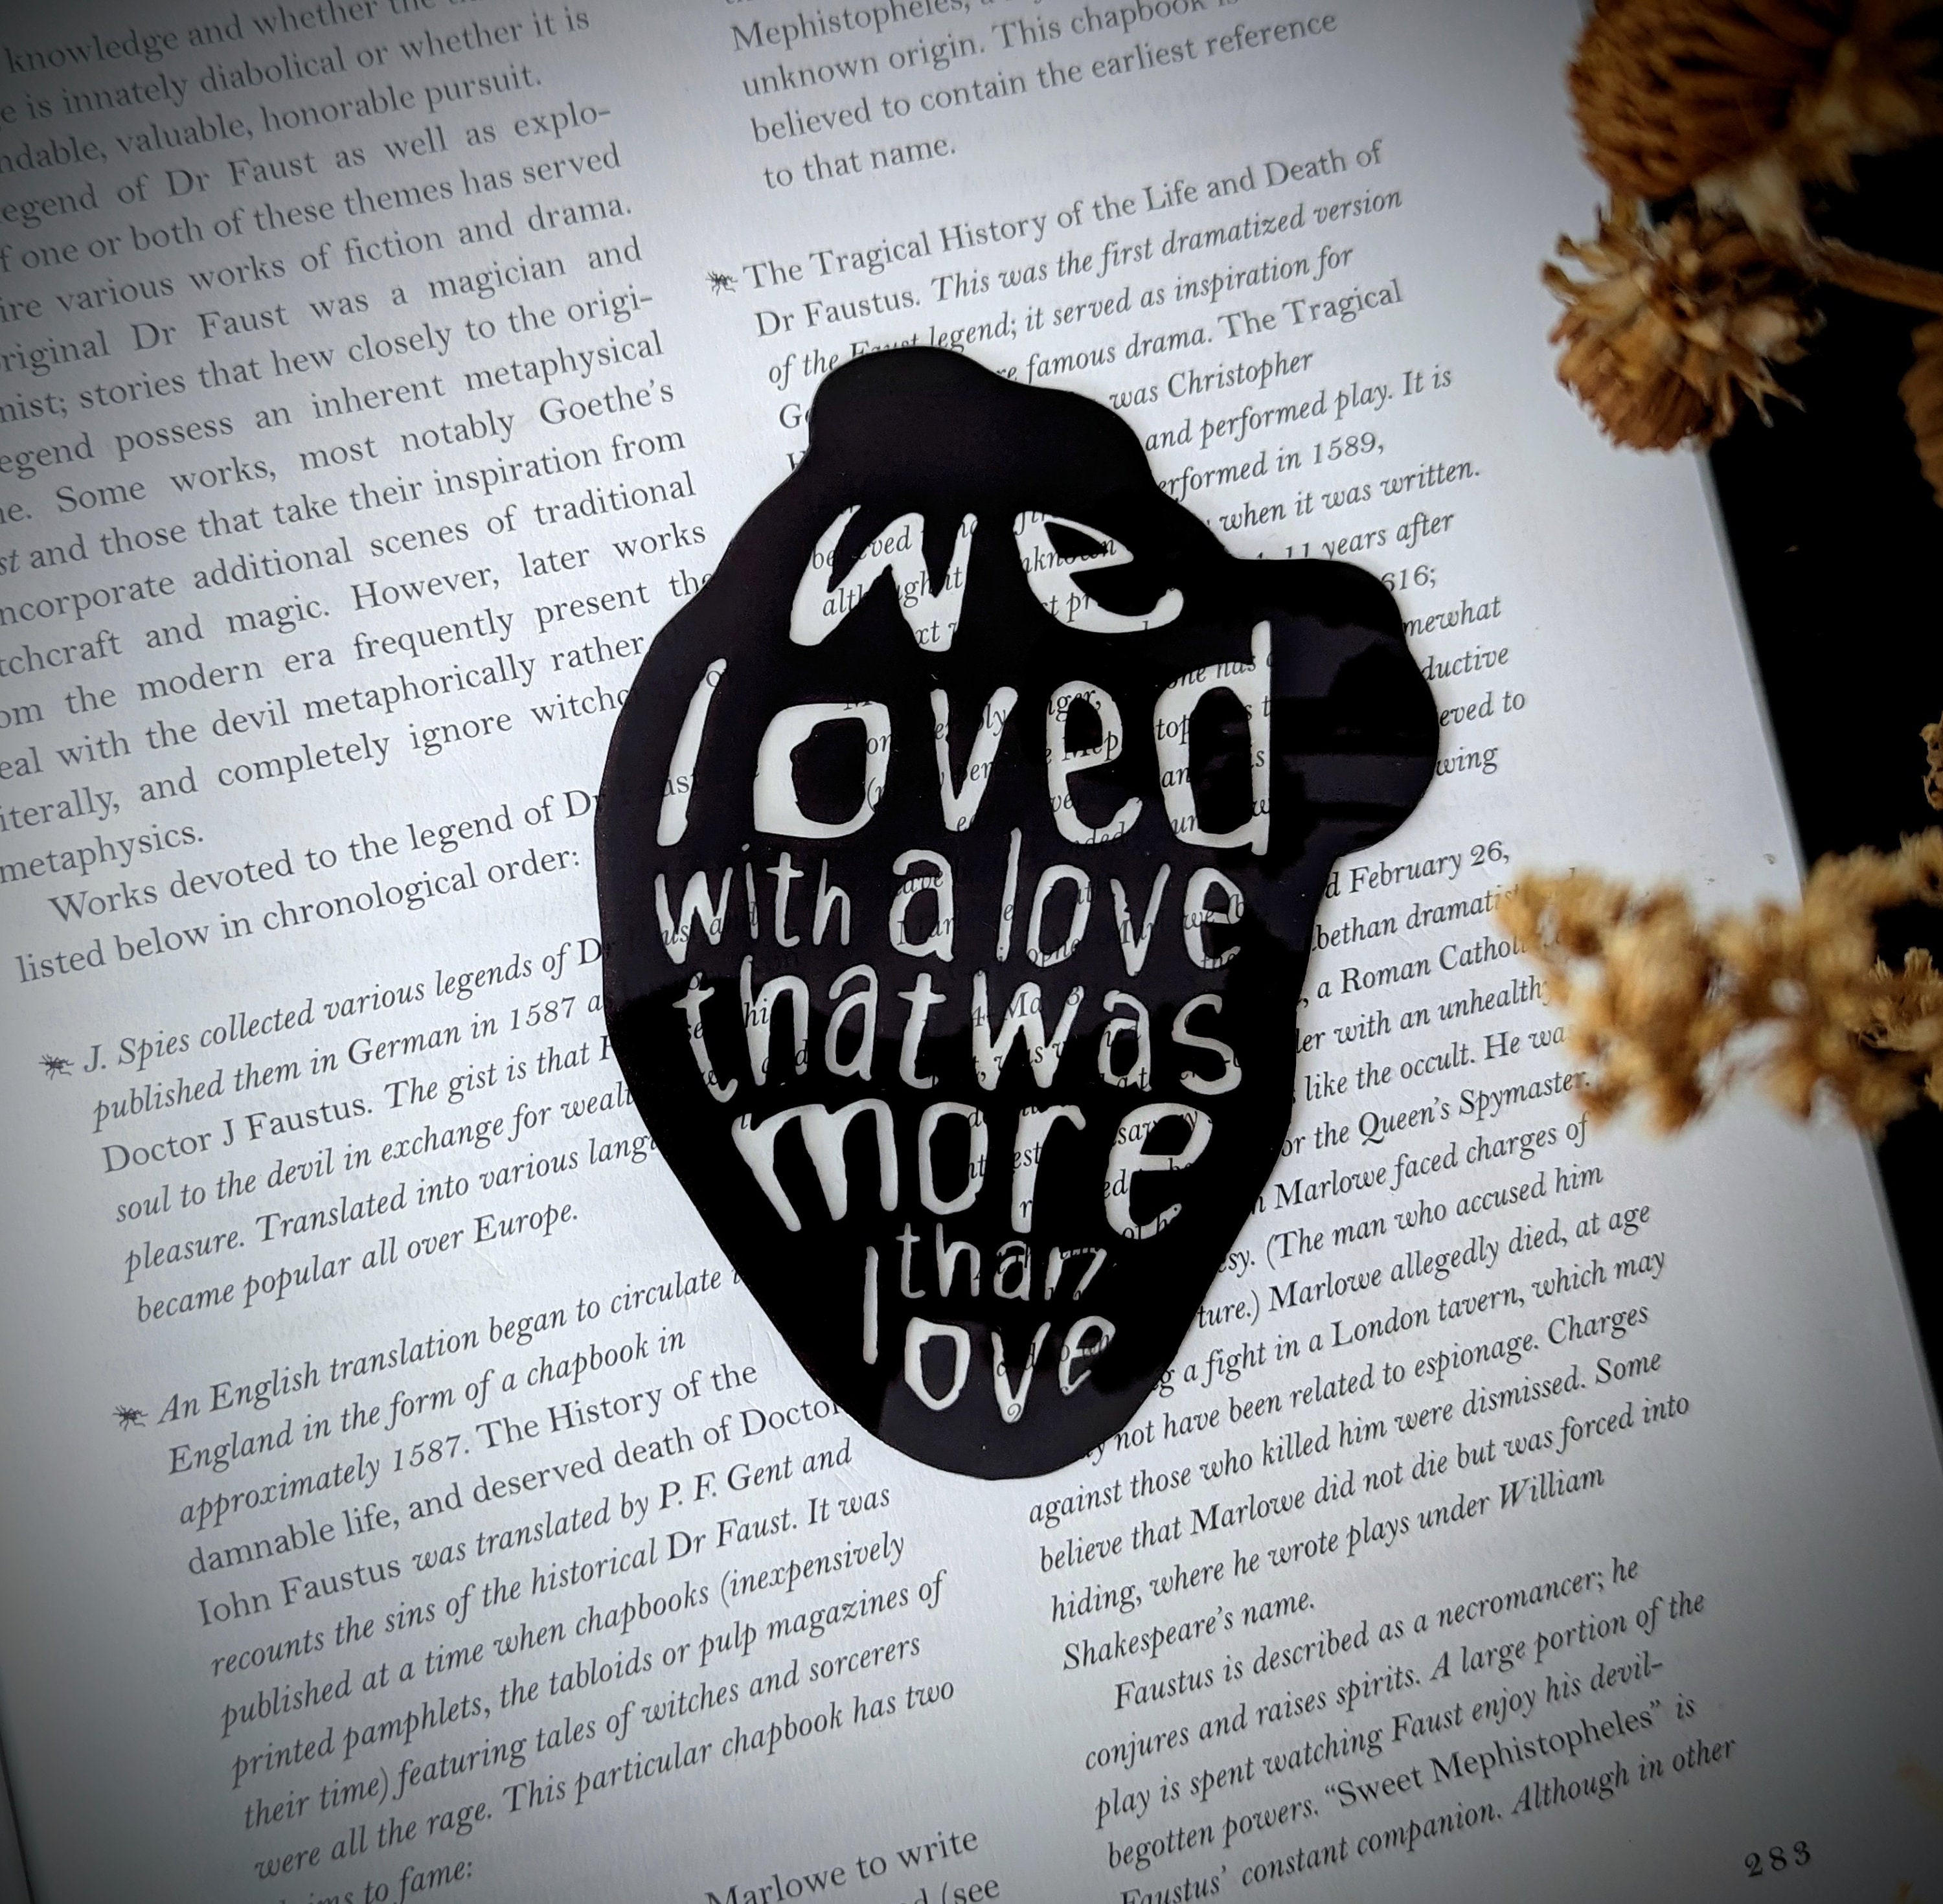 knowledge and whether the
is innately diabolical or whether it is
valuable, honorable pursuit.
legend of Dr Faust as well as explo-
one or both of these themes has served
various works of fiction and drama.
Dr Faust was a magician and
stories that hew closely to the origi-
possess an inherent metaphysical
Some works, most notably Goethe's
and those that take their inspiration from
incorporate additional scenes of traditional
and magic. However, later works
the modern era frequently present the
with the devil metaphorically rather
literally, and completely ignore
metaphysics.
Works devoted to the legend of Dr
listed below in chronological order:
J. Spies collected various legends of Dr
published them in German in 1587
Doctor J Faustus. The gist is that
soul to the devil in exchange for
pleasure. Translated into various
became popular all over Europe.
An English translation began to circulate
England in the form of a chapbook in
approximately 1587. The History of the
damnable life, and deserved death of Doctor
Iohn Faustus was translated by P. F. Gent and
recounts the sins of the historical Dr Faust. It was
published at a time when chapbooks (inexpensively
printed pamphlets, the tabloids or pulp magazines of
their time) featuring tales of witches and sorcerers
were all the rage. This particular chapbook has two
to fame:
Mephistopheles,
unknown origin. This chapbook is
believed to contain the earliest reference
to that name.
The Tragical History of the Life and Death of
Dr Faustus. This was the first dramatized version
of the Faust legend; it served as inspiration for
famous drama. The Tragical
was Christopher
and performed play. It is
performed in 1589,
when it was written.
11 years after
1616;
we
loved
with a love
that was
more
than
love
February 26,
a Roman
with an unhealthy
like the occult. He was
or the Queen's Spymaster.
Marlowe faced charges of
(The man who accused him
Marlowe allegedly died, at age
a fight in a London tavern, which may
not have been related to espionage. Charges
against those who killed him were dismissed. Some
believe that Marlowe did not die but was forced into
hiding, where he wrote plays under William
Shakespeare's name.
Faustus is described as a necromancer; he
conjures and raises spirits. A large portion of the
play is spent watching Faust enjoy his devil-
begotten powers. “Sweet Mephistopheles” is
Faustus' constant companion. Although in other
Marlowe to write
(see
283